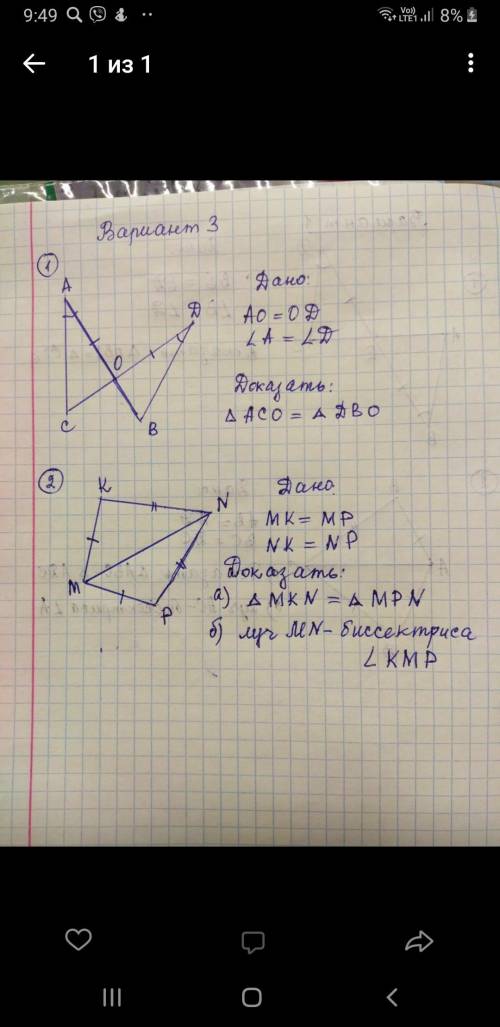 9:49
Vo))
LTE1
8%
1 из 1
Вариант 3
1
A
D
O
C
B
Дано:
AO = OD
∠A = ∠D
Доказать:
△ ACO = △ DBO
2
K
N
M
P
Дано
MK = MP
NK = NP
Доказать:
а) △ MKN = △ MPN
б) луч MN - биссектриса
∠ KMP